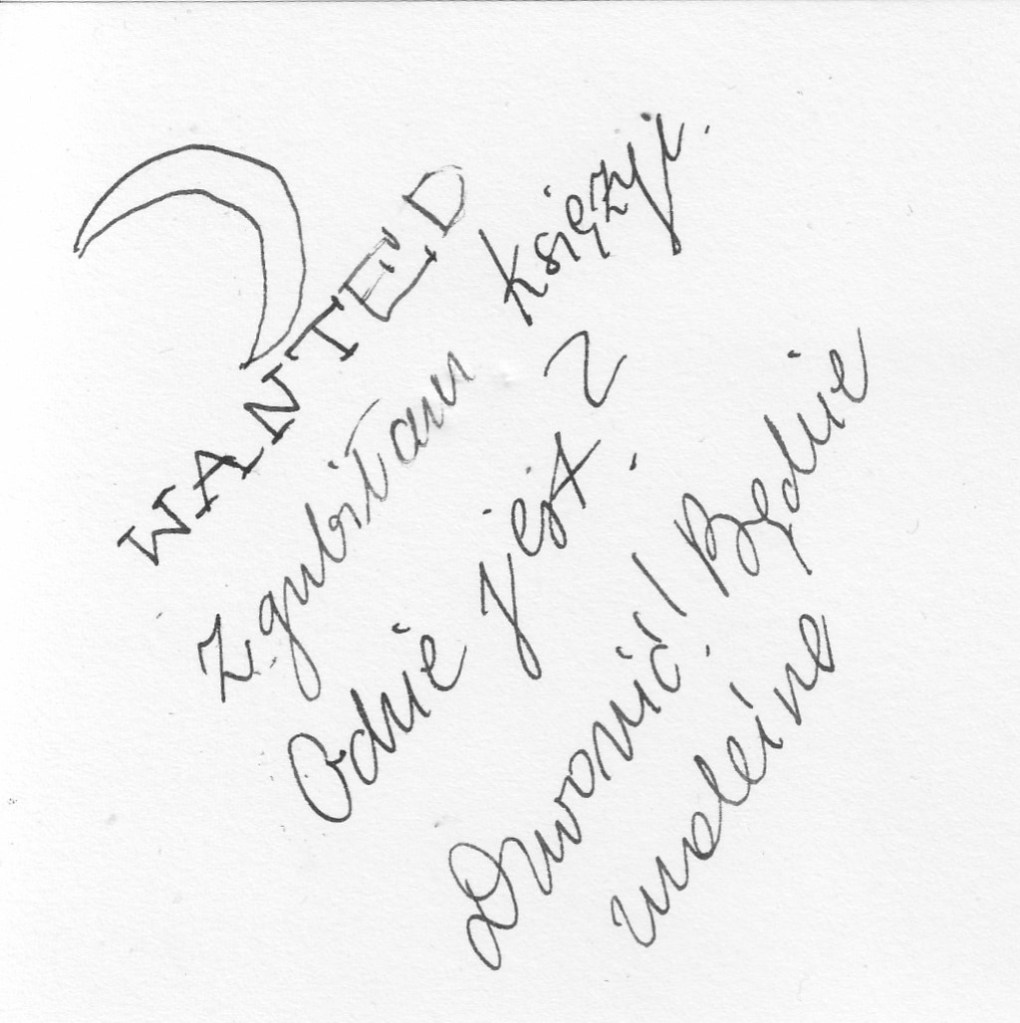 WANTED
Zgubiłam księżyc.
Gdzie jest?
Dzwonić! Będzie
znaleźne